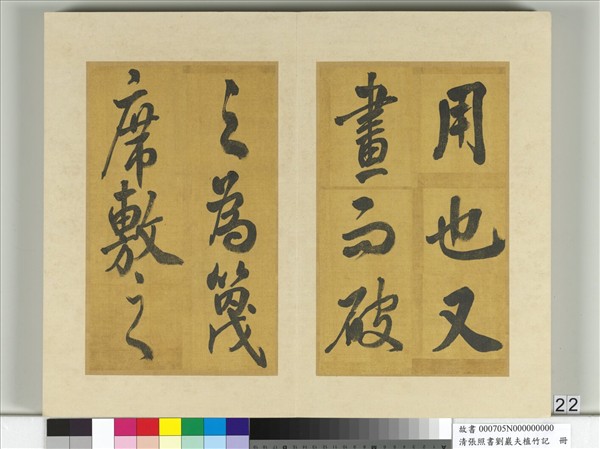 用也又
畫而破
之為篾
席敷之
22
故書 000705N000000000
清張照書劉巖夫植竹記 冊